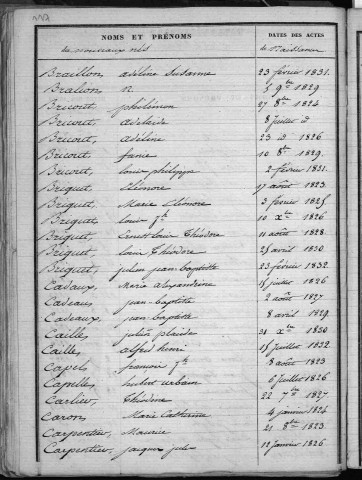 NOMS ET PRÉNOMS DATES DES ACTES
des nouveaux nés de Naissance
Braillon, adéline Suzanne 23 février 1831.
Bralion, N 5 9bre 1829
Bricout, philémon 27 8bre 1824
Bricout, adelaïde 8 juillet d
Bricout, adéline 23 d 1826
Bricout, fanie 10 8bre 1829.
Bricout, louis philippe 2 février 1831.
Briquet, Eléonore 17 aout 1823.
Briquet, Marie Eléonore 3 février 1825
Briquet, louis fs 10 Xbre 1826
Briquet, Ernest louis Théodore 11 aout 1828.
Briquet, louis Théodore 25 avril 1830.
Briquet, julien jean-baptiste 23 février 1832.
Cadaux, Marie alexandrine 15 juillet 1826
Cadeaux, jean-baptiste 2 aout 1827
Cadeaux, jean-baptiste 8 avril 1829.
Cailles, julien placide 31 Xbre 1830
Cailles, alfred henri 15 juillet 1832.
Capel, françois fs 8 aout 1823
Capelle, hubert urbain 6 juillet 1826
Carlier, Théodore 22 7bre 1827
Caron, Marie Catherine 4 janvier 1824
Carpentier, Maurice 21 8bre 1823.
Carpentier, jacques jule 12 janvier 1826.